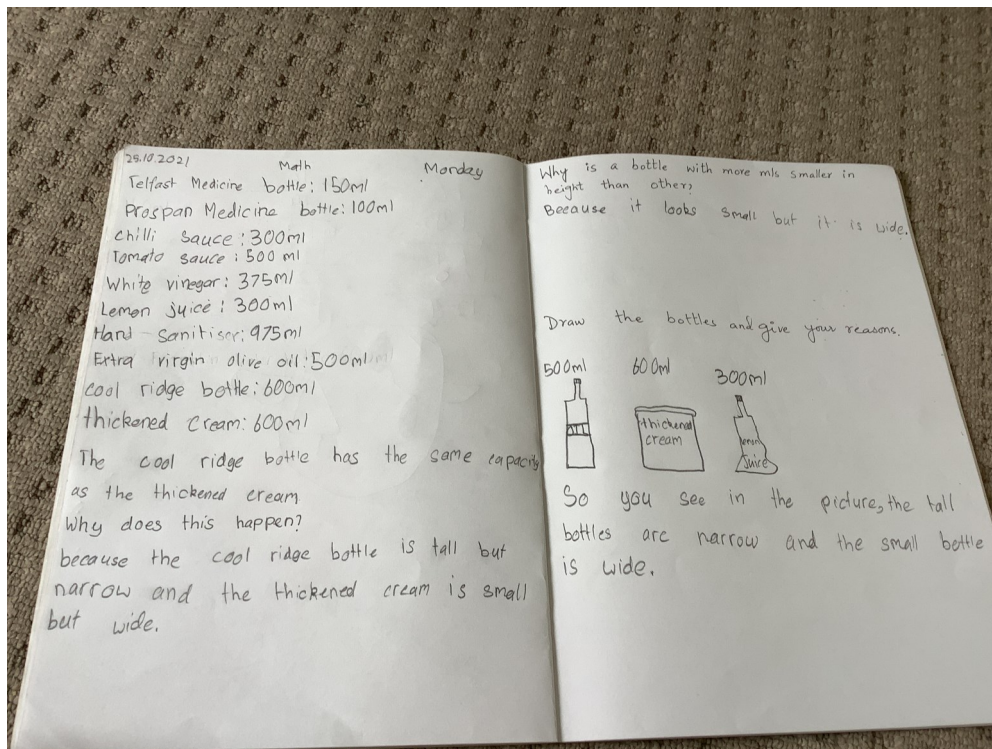 25.10.2021 Math Monday
Telfast Medicine bottle: 150ml
Prospan Medicine bottle: 100ml
chilli sauce: 300ml
Tomato sauce: 500 ml
White vinegar: 375ml
Lemon juice: 300ml
Hand Sanitiser: 975ml
Extra virgin olive oil: 500ml
cool ridge bottle: 600ml
thickened cream: 600ml
The cool ridge bottle has the same capacity
as the thickened cream
Why does this happen?
because the cool ridge bottle is tall but
narrow and the thickened cream is small
but wide.
Why is a bottle with more mls smaller in
height than other?
Because it looks small but it is wide.
Draw the bottles and give your reasons.
500ml 600ml 300ml
thickened
cream
Juice
So you see in the picture, the tall
bottles are narrow and the small bottle
is wide.